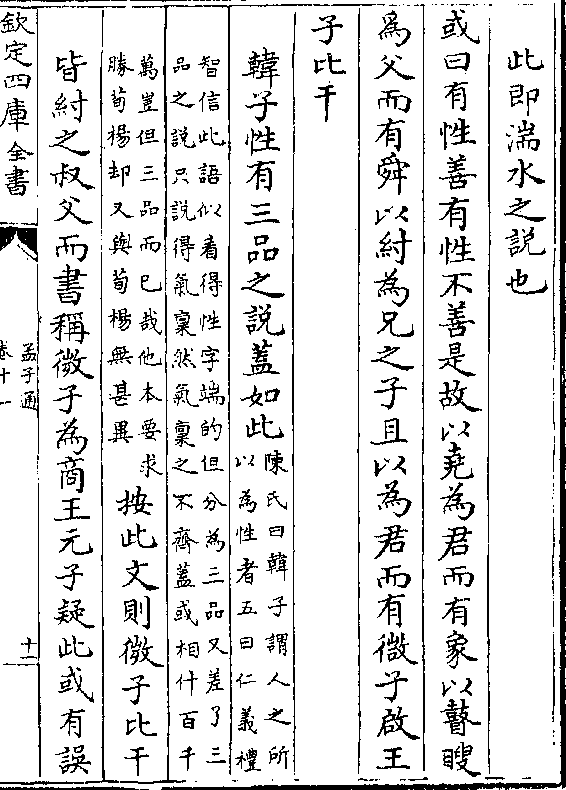 此即湍水之説也
或曰有性善有性不善是故以堯為君而有象以瞽瞍
為父而有舜以紂為兄之子且以為君而有微子啟王
子比干
韓子性有三品之説蓋如此陳氏曰韓子謂人之所
以為性者五曰仁義禮
智信此語似看得性字端的但分為三品又差了三
品之説只説得氣稟然氣稟之不齊蓋或相什百千
萬豈但三品而已哉他本要求
勝荀楊却又與荀楊無甚異
按此文則微子比干
皆紂之叔父而書稱微子為商王元子疑此或有誤
欽定四庫全書
孟子通
卷十一
十二